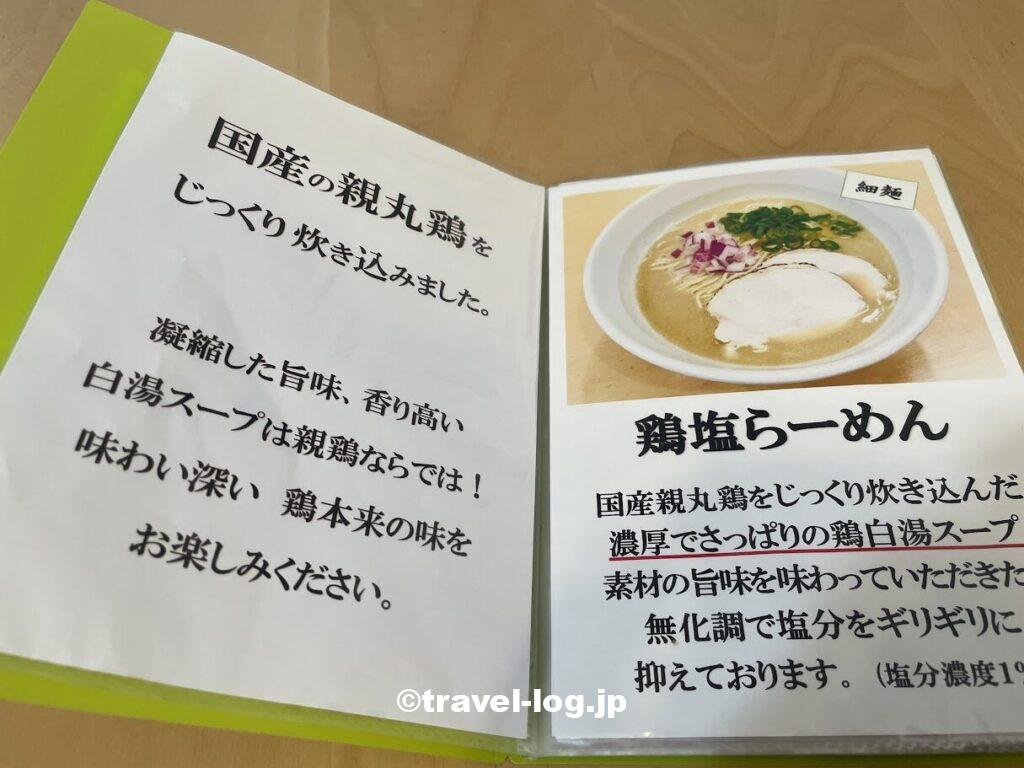 国産の親丸鶏を
じっくり炊き込みました。
凝縮した旨味、香り高い
白湯スープは親鶏ならでは！
味わい深い 鶏本来の味を
お楽しみください。
細麺
鶏塩らーめん
国産親丸鶏をじっくり炊き込んだ
濃厚でさっぱりの鶏白湯スープ
素材の旨味を味わっていただきた
無化調で塩分をギリギリに
抑えております。(塩分濃度1%
©travel-log.jp